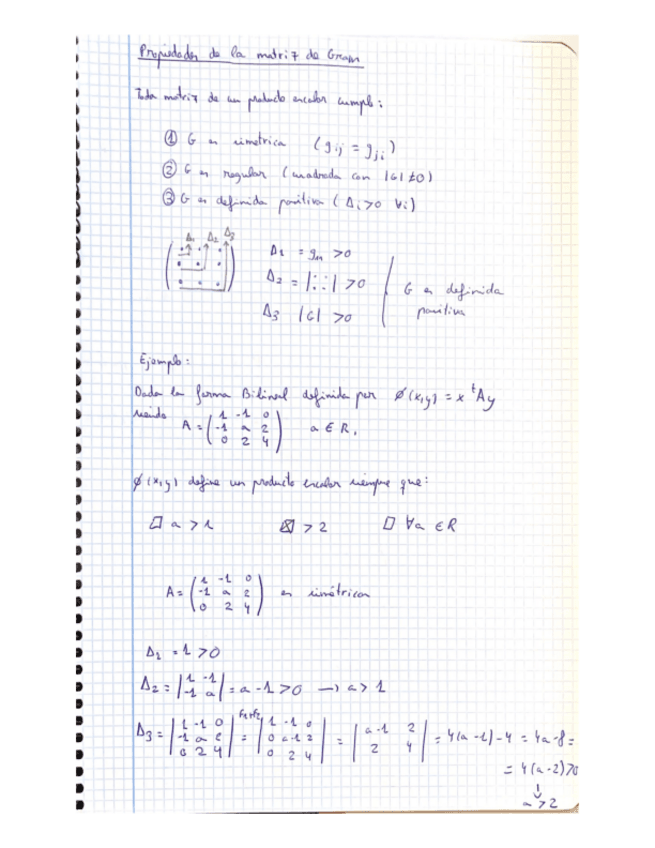 Propiedades de la matriz de Gram
Toda matriz de un producto escalar cumple:
① G es simétrica (gij = gji)
② G es regular (cuadrada con |G| ≠ 0)
③ G es definida positiva (Δi > 0 ∀i)
Δ1 Δ2 Δ3
Δ1 = g11 > 0
Δ2 = |: :| > 0
Δ3 |G| > 0
G es definida
positiva
Ejemplo:
Dada la forma Bilineal definida por φ(x,y) = x ᵗAy
siendo A = (1 -1 0; -1 a 2; 0 2 4) a ∈ R.
φ(x,y) define un producto escalar siempre que:
☐ a > 1 ☒ > 2 ☐ ∀a ∈ R
A = (1 -1 0; -1 a 2; 0 2 4) es simétrica
Δ1 = 1 > 0
Δ2 = |1 -1; -1 a| = a - 1 > 0 → a > 1
Δ3 = |1 -1 0; -1 a 2; 0 2 4| = |1 -1 0; 0 a-1 2; 0 2 4| = |a-1 2; 2 4| = 4(a-1) - 4 = 4a - 8 =
= 4(a-2) > 0
↓
a > 2